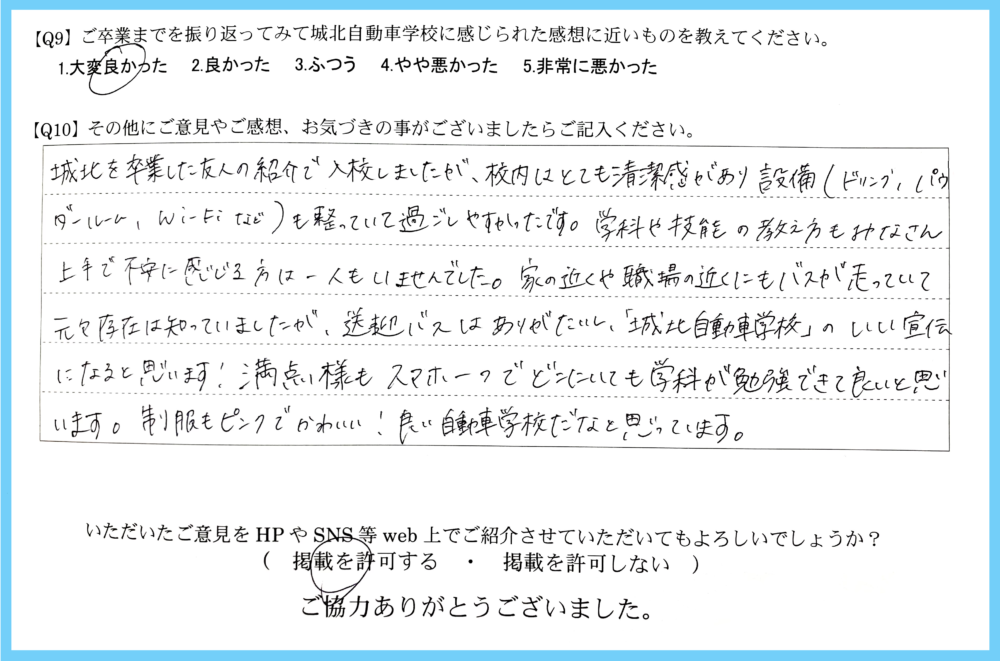 【Q9】ご卒業までを振り返ってみて城北自動車学校に感じられた感想に近いものを教えてください。
1.大変良かった 2.良かった 3.ふつう 4.やや悪かった 5.非常に悪かった
【Q10】その他にご意見やご感想、お気づきの事がございましたらご記入ください。
城北を卒業した友人の紹介で入校しましたが、校内はとても清潔感があり設備(ドリンク、パウ
ダールーム、Wi-Fiなど)も整っていて過ごしやすかったです。学科や技能の教え方もみなさん
上手で不安に感じる方は一人もいませんでした。家の近くや職場の近くにもバスが走っていて
元々存在は知っていましたが、送迎バスはありがたいし、「城北自動車学校」のいい宣伝
になると思います!満点様もスマホ一つでどこにいても学科が勉強できて良いと思
います。制服もピンクでかわいい!良い自動車学校だなと思っています。
いただいたご意見をHPやSNS等web上でご紹介させていただいてもよろしいでしょうか?
( 掲載を許可する ・ 掲載を許可しない )
ご協力ありがとうございました。